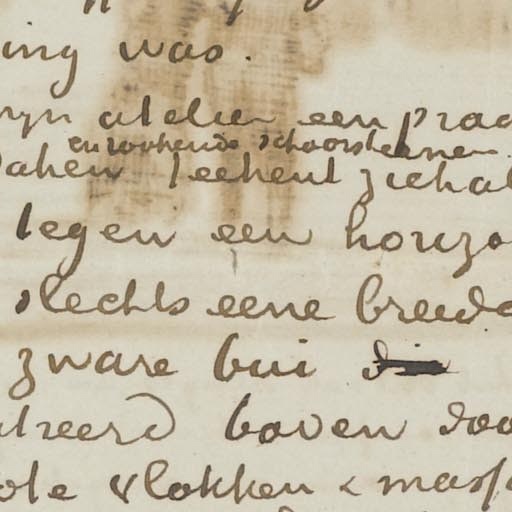 ing was.
myn atelier een prac
en rookende schoorsteenen
daken teekent zich al
tegen een horizo
slechts eene breede
zware bui
atreerd boven doo
ote vlokken & massa